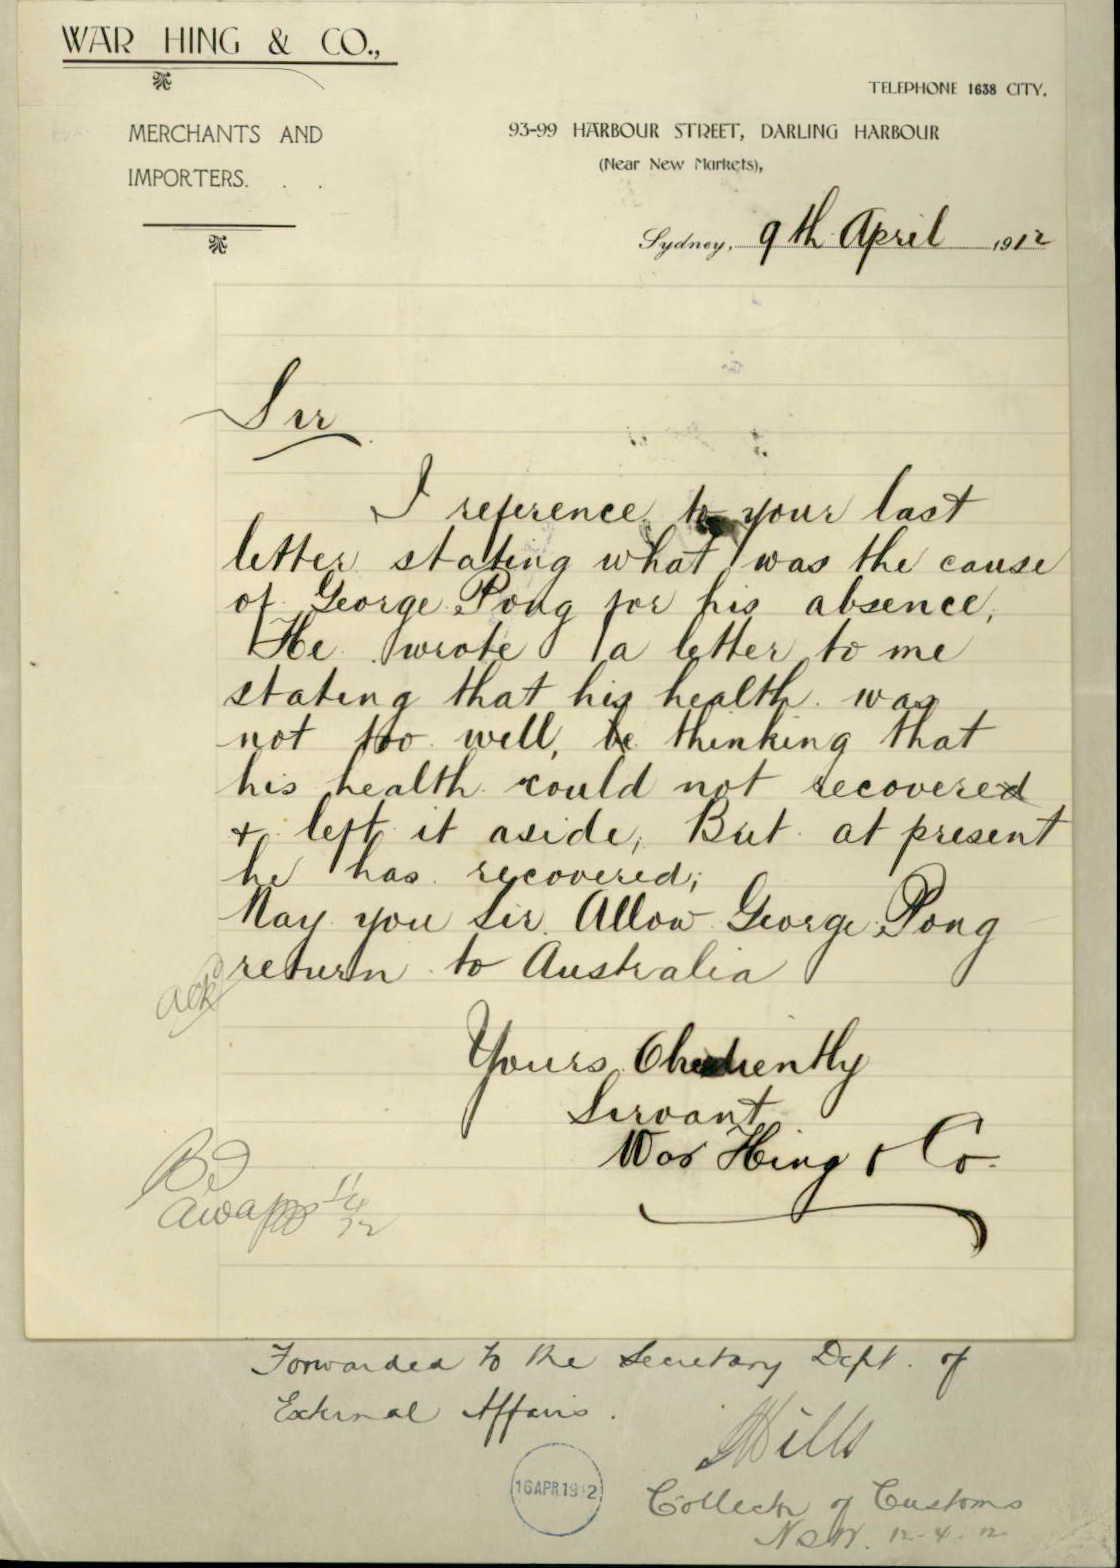 WAR HING & CO.,
TELEPHONE 1638 CITY.
MERCHANTS AND
IMPORTERS. . .
93-99 HARBOUR STREET, DARLING HARBOUR
(Near New Markets),
Sydney, 9th April 1912
Sir
I reference to your last
letter stating what was the cause
of George Pong for his absence,
He wrote a letter to me
stating that his health was
not too well, he thinking that
his health could not recovered
& left it aside, But at present
he has recovered;
May you Sir Allow George Pong
return to Australia
ack
Yours Obediently
Servant
War Hing & Co.
11/4/12
Forwarded to the Secretary Dept. of
External Affairs.
Mills
16 APR 1912
Collector of Customs
NSW. 12-4-12